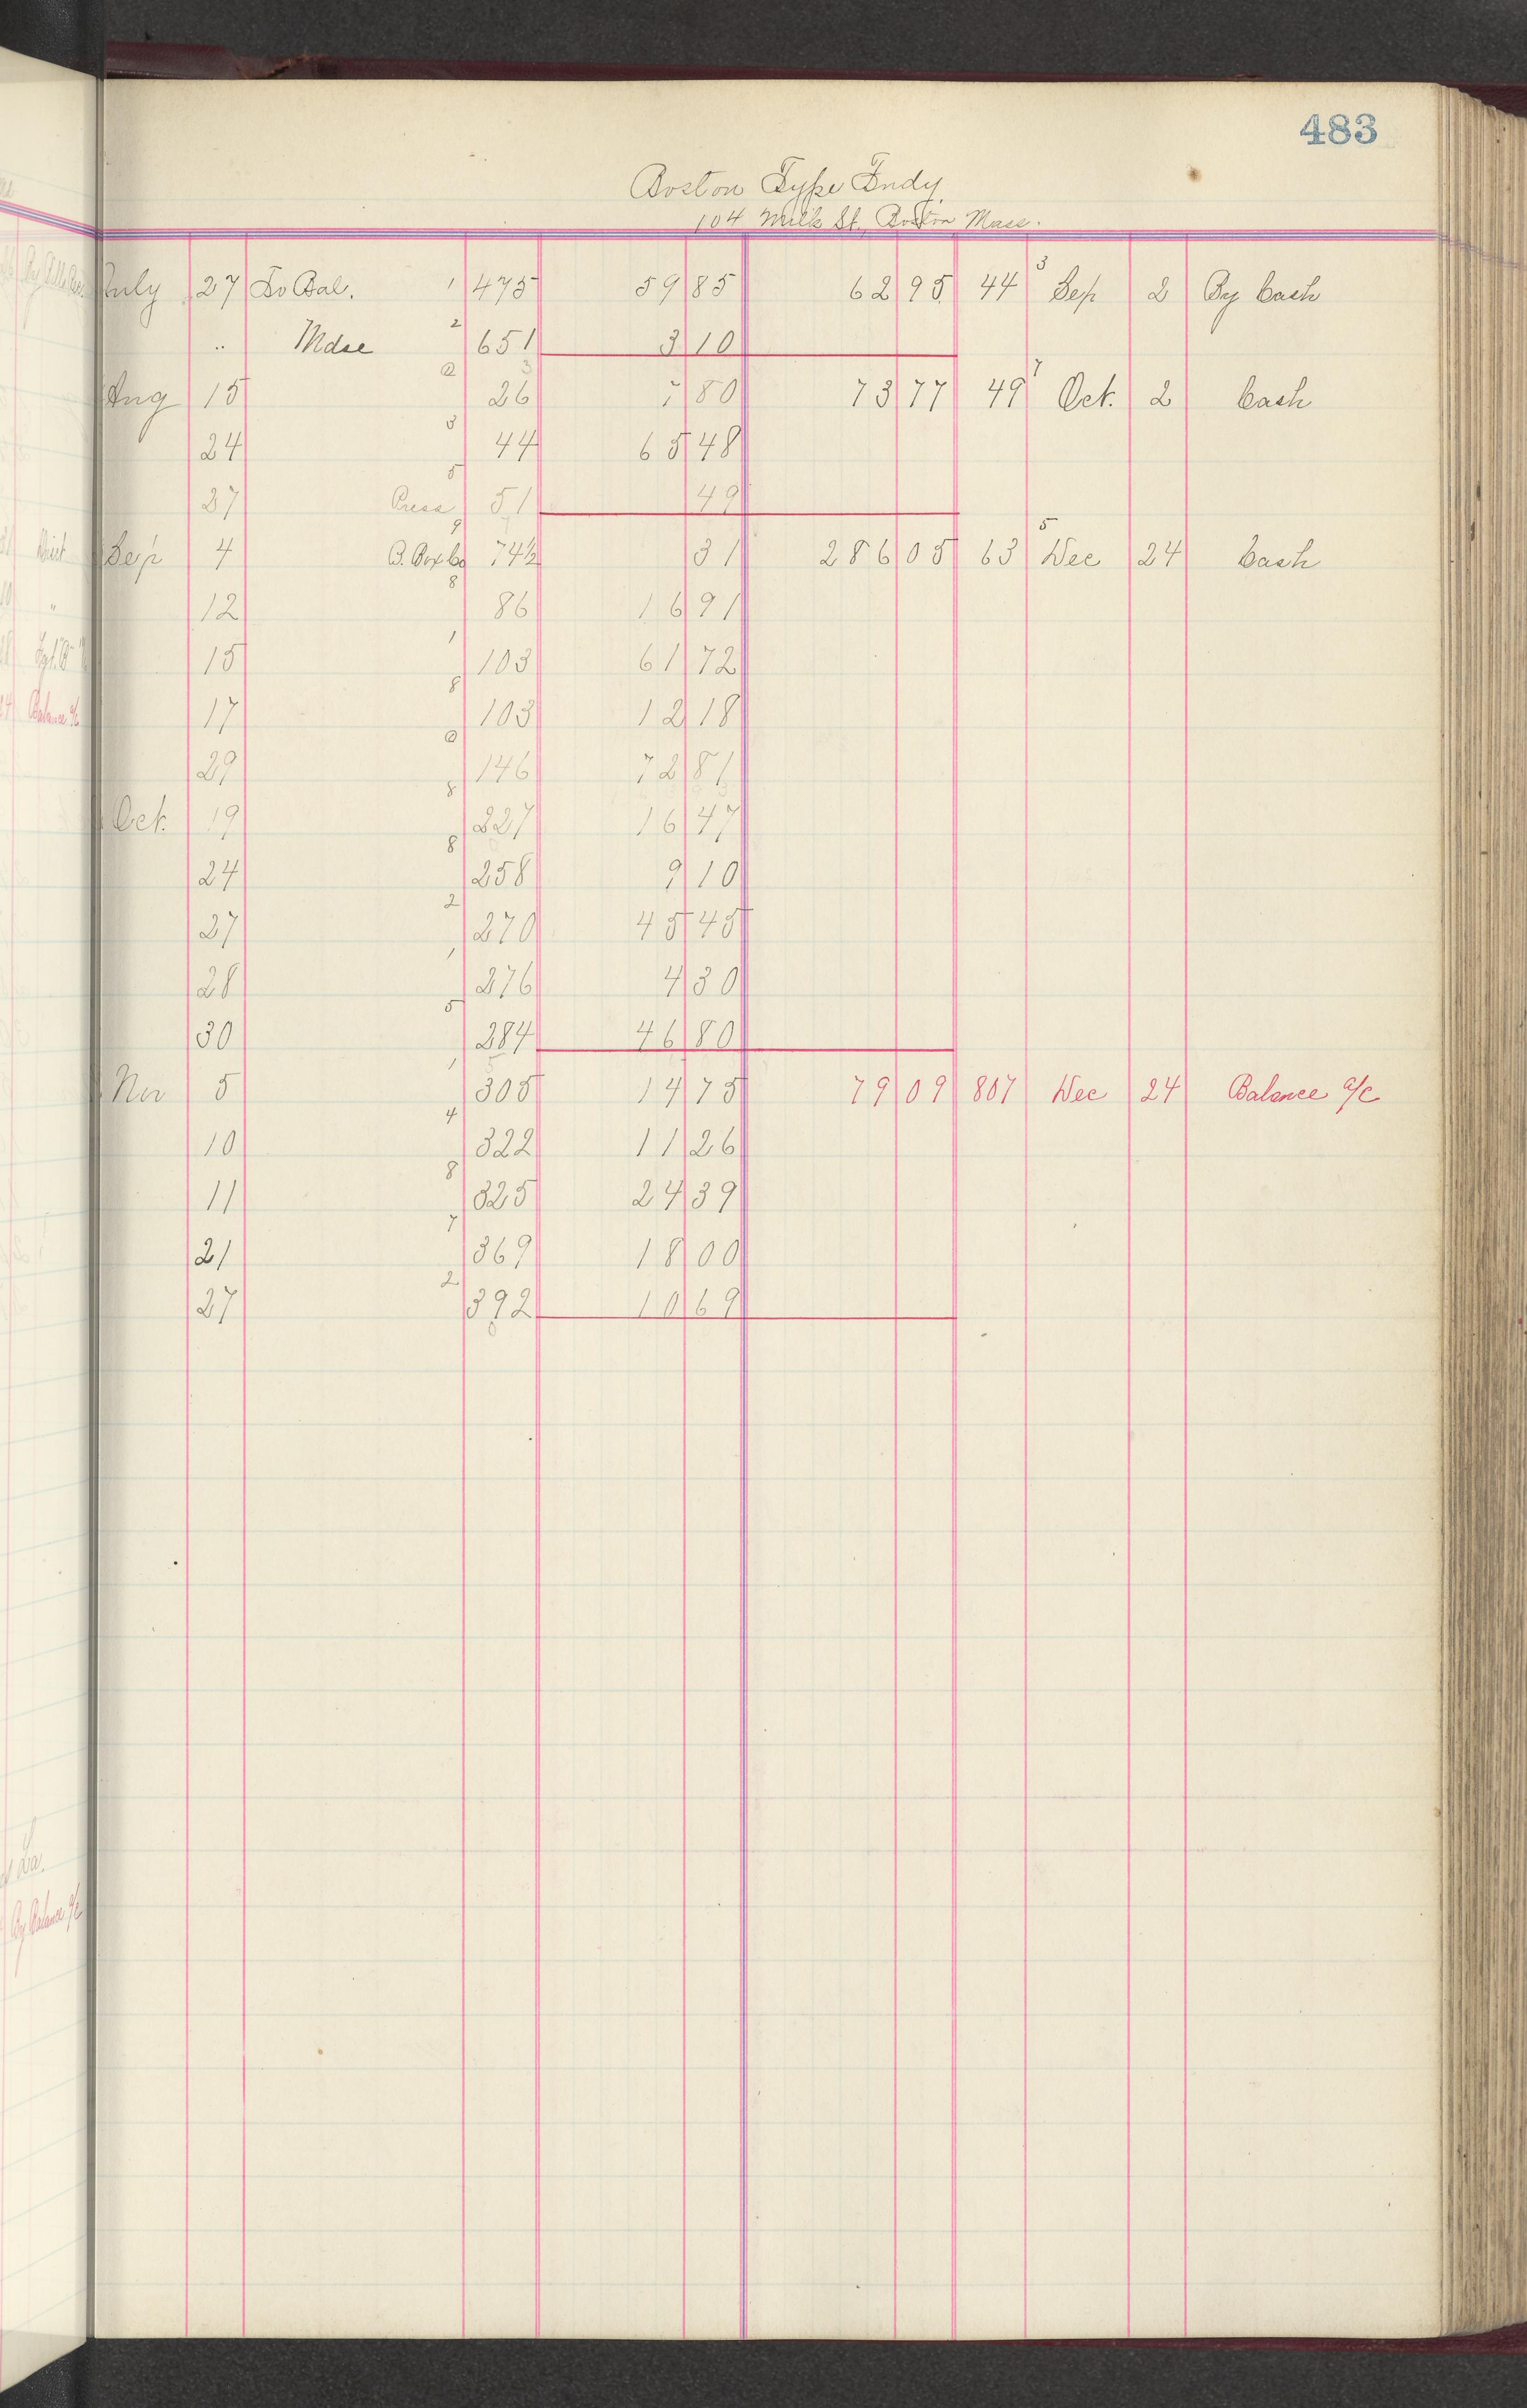 483
Boston Type Fndy
104 Milk St., Boston Mass.
July 27 To Bal. 1 475 59 85 62 95 44 3 Sep 2 By Cash
" Mdse 2 651 3 10
Aug 15 2 26 7 80 73 77 49 7 Oct. 2 Cash
24 3 44 65 48
27 Press 5 51 49
Sep 4 B. Box Co 9 74½ 31 286 05 63 5 Dec 24 Cash
12 8 86 16 91
15 1 103 61 72
17 8 103 12 18
29 2 146 72 81
Oct. 19 8 227 16 47
24 8 258 9 10
27 2 270 45 45
28 1 276 4 30
30 5 284 46 80
Nov 5 1 305 14 75 79 09 807 Dec 24 Balance a/c
10 4 322 11 26
11 8 325 24 39
21 7 369 18 00
27 2 392 10 69
Balance a/c
By Balance a/c